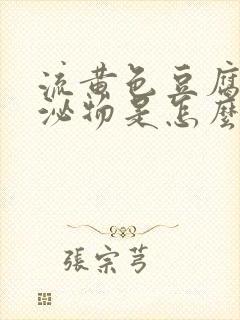 流黄色豆腐
泌物是怎麼
張宗芎